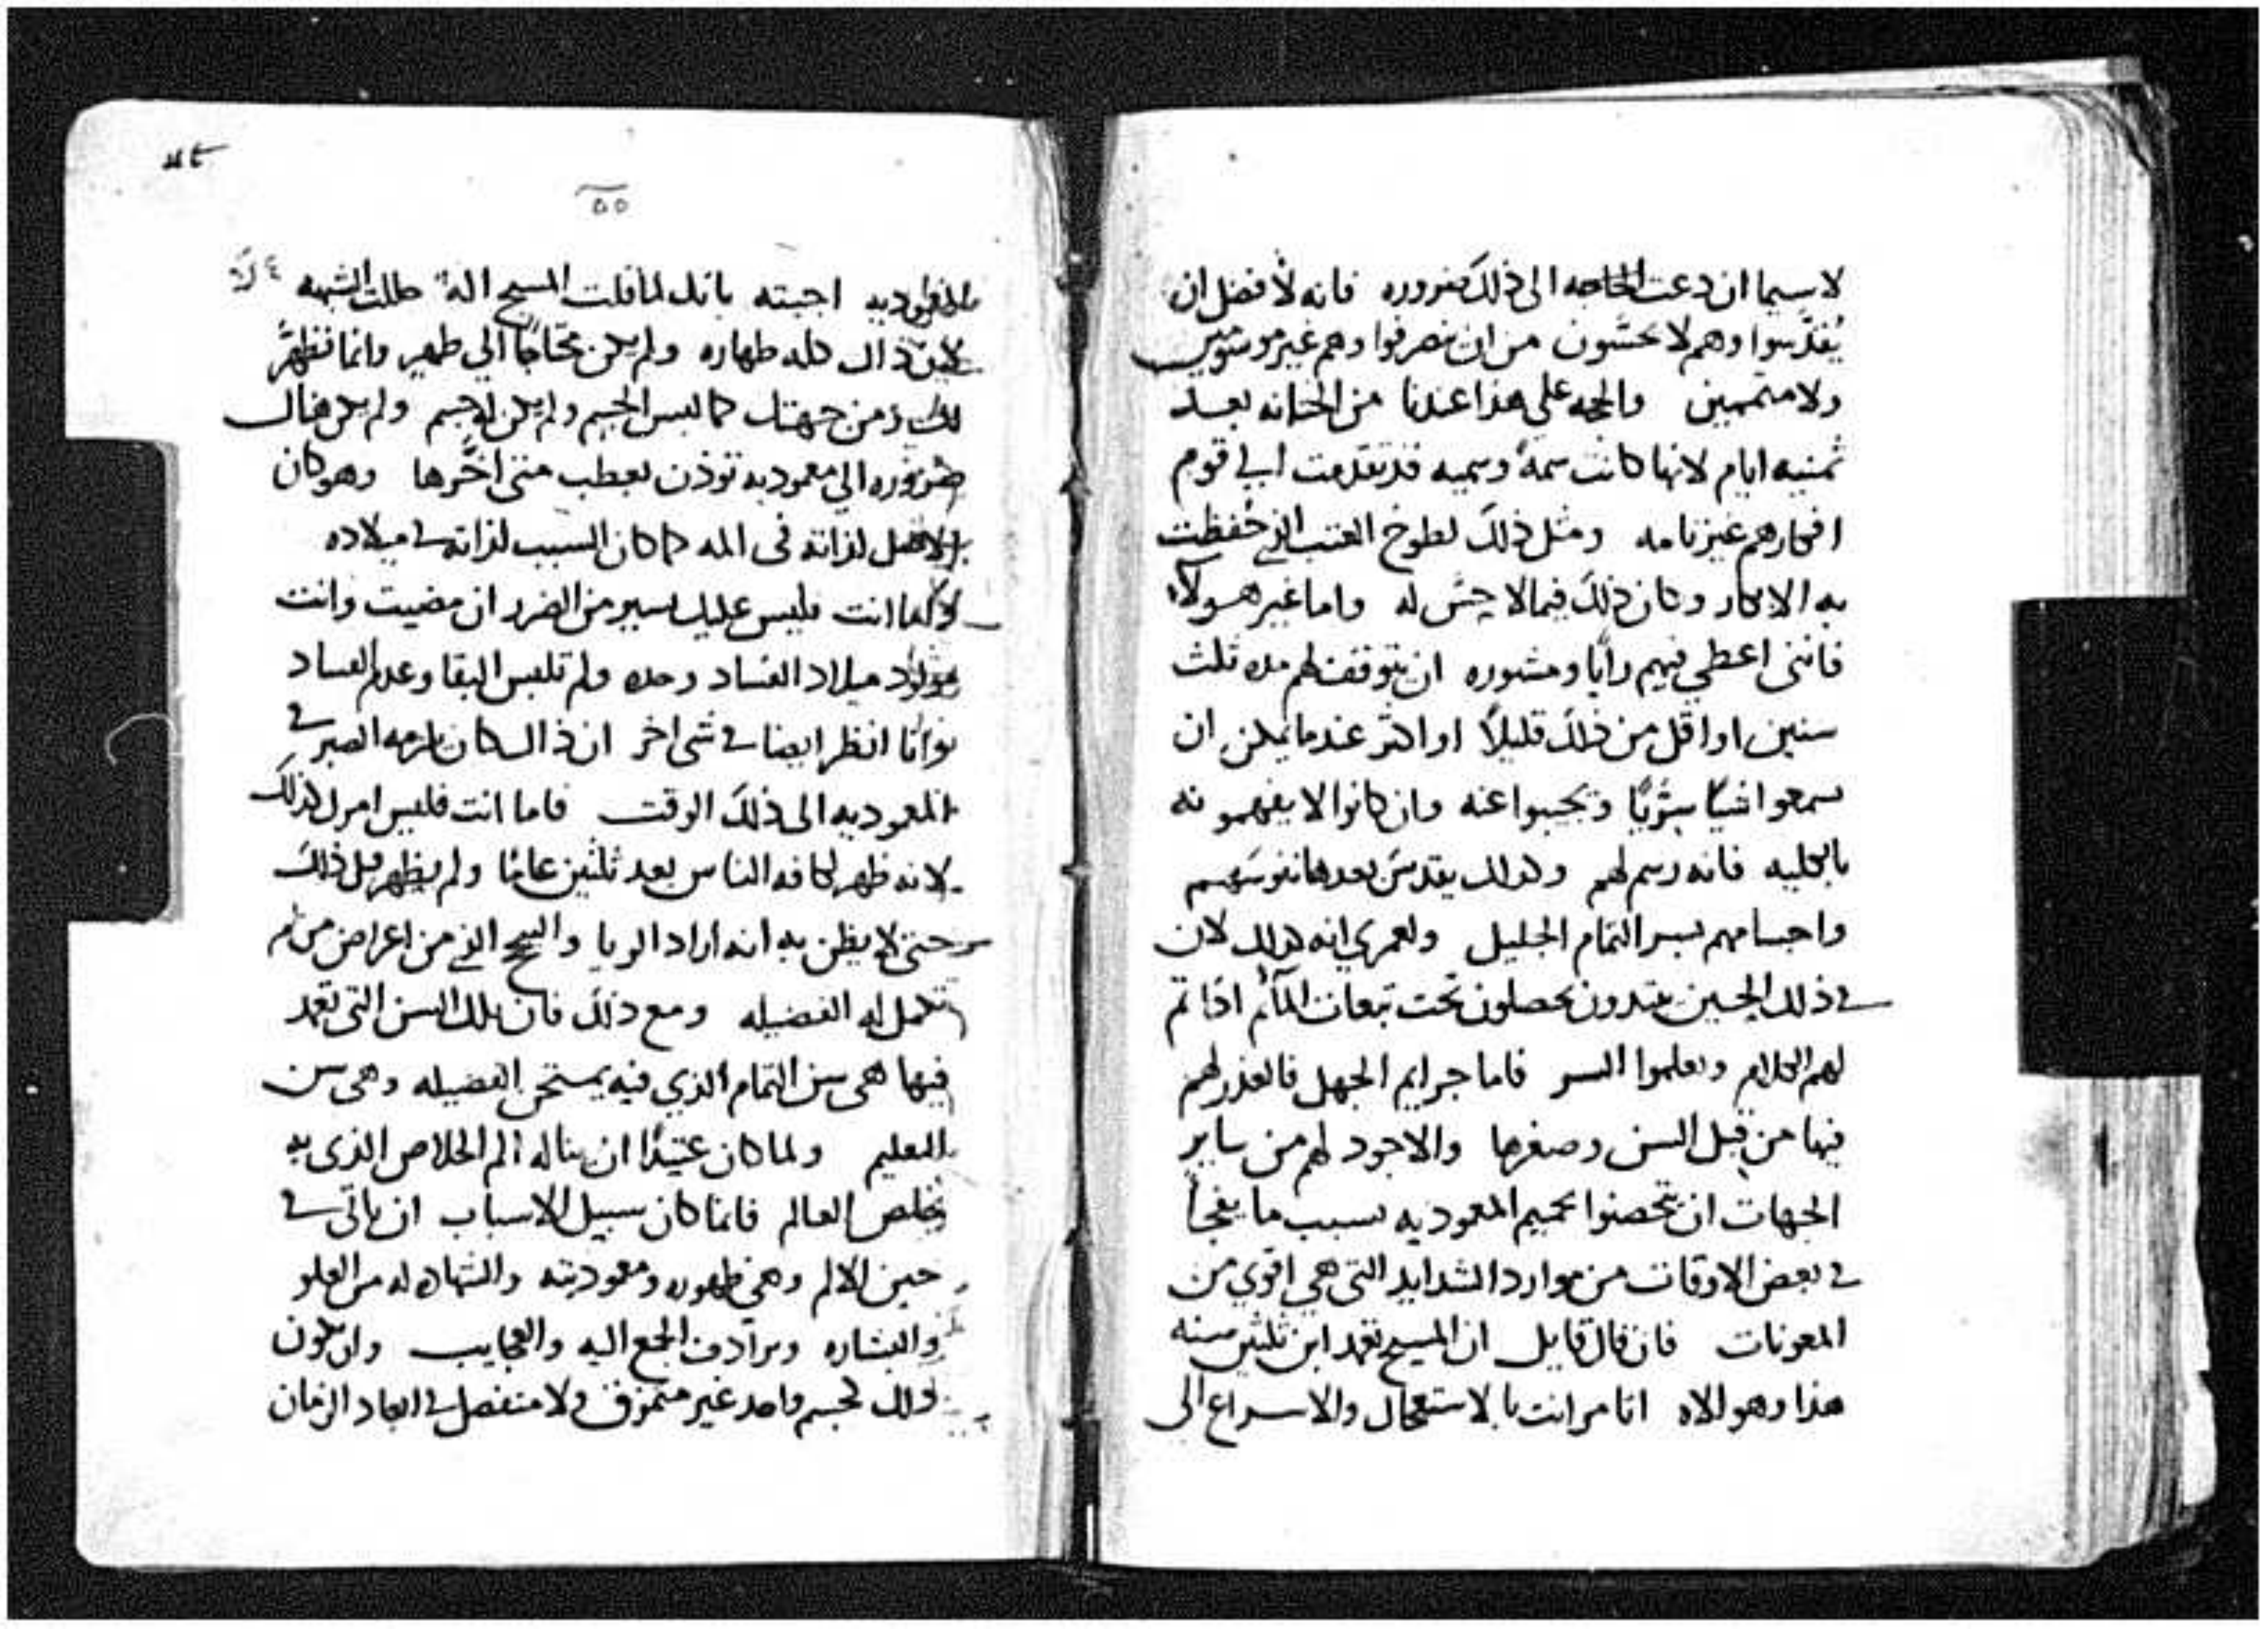 لا سيما ان دعت الحاجه الى ذلك بضروره فانه لأفضل ان
يُقدّسوا وهم لا يحسّون من ان ينصرفوا وهم غير موسومين
ولا متممين والحجه على هذا عندنا من الختانه بعد
ثمنيه ايام لانها كانت سمةً وسميه قد تقدمت الي قوم
افكارهم غير تامه ومثل ذلك لطوخ العتب الذي حُفظت
به الابكار وكان ذلك فيما لا يحسّ له واما غير هولآء
فانني اعطي فيهم رأيًا ومشوره ان يتوقف لهم مده ثلث
سنين او اقل من ذلك قليلًا او اكثر عندما يمكن ان
يسمعوا شيًا سِرّيًا ويجيبوا عنه وان كانوا لا يفهمونه
بالكليه فانه رسم لهم وكذلك يقدس بعدها نفوسهم
واجسامهم بسر التمام الجليل ولعمري انه كذلك لان
في ذلك الحين يبتدون يحصلون تحت تبعات المآثم اذا تم
لهم الكلام وتعلموا السر فاما جرايم الجهل فالعذر لهم
فيها من قبل السن وصغرها والاجود لهم من ساير
الجهات ان يتحصنوا بحميم المعموديه بسبب ما يفجأ
في بعض الاوقات من موارد الشدايد التي هي اقوي من
المعونات فان قال قايل ان المسيح تعمد ابن ثلثين سنه
هذا وهو الاه اتامر انت بالاستعجال والاسراع الى
٥٥
المعموديه اجبته بانك لما قلت المسيح اله حللت الشبهه
لان ذاك كله طهاره ولم يكن محتاجًا الي طهير وانما تطهّر
لك ومن جهتك كما لبس الجسم ولم يكن له جسم ولم يكن هناك
ضروره الي معموديه توذن بعطب متى اخّرها وهو كان
لذاته في المه كما كان السبب لذاته في ميلاده
انت فليس عليك يسير من الضرر ان مضيت وانت
مولود ميلاد الفساد وحده ولم تلبس البقا وعدم الفساد
وانا انظر ايضا في شي اخر ان ذاك كان يلزمه الصبر في
المعموديه الى ذلك الوقت فاما انت فليس امرك كذلك
لانه ظهر لكافه الناس بعد ثلثين عامًا ولم يظهر قبل ذلك
حتى لا يظن به انه اراد الريا والبجح الذي من اعراض من لم
تكمل له الفضيله ومع ذلك فان تلك السن التي تعمد
فيها هي سن التمام الذي فيه يمتحن الفضيله وهي سن
التعليم ولما كان عتيدًا ان يناله الم الخلاص الذي به
يخلص العالم فانما كان سبيل الاسباب ان ياتي في
حين الالم وهي ظهوره ومعموديته والشهاده له من العلو
والبشاره وترادف الجمع اليه والعجايب وان يكون
ذلك كجسم واحد غير متمزق ولا منفصل في ابعاد الزمان